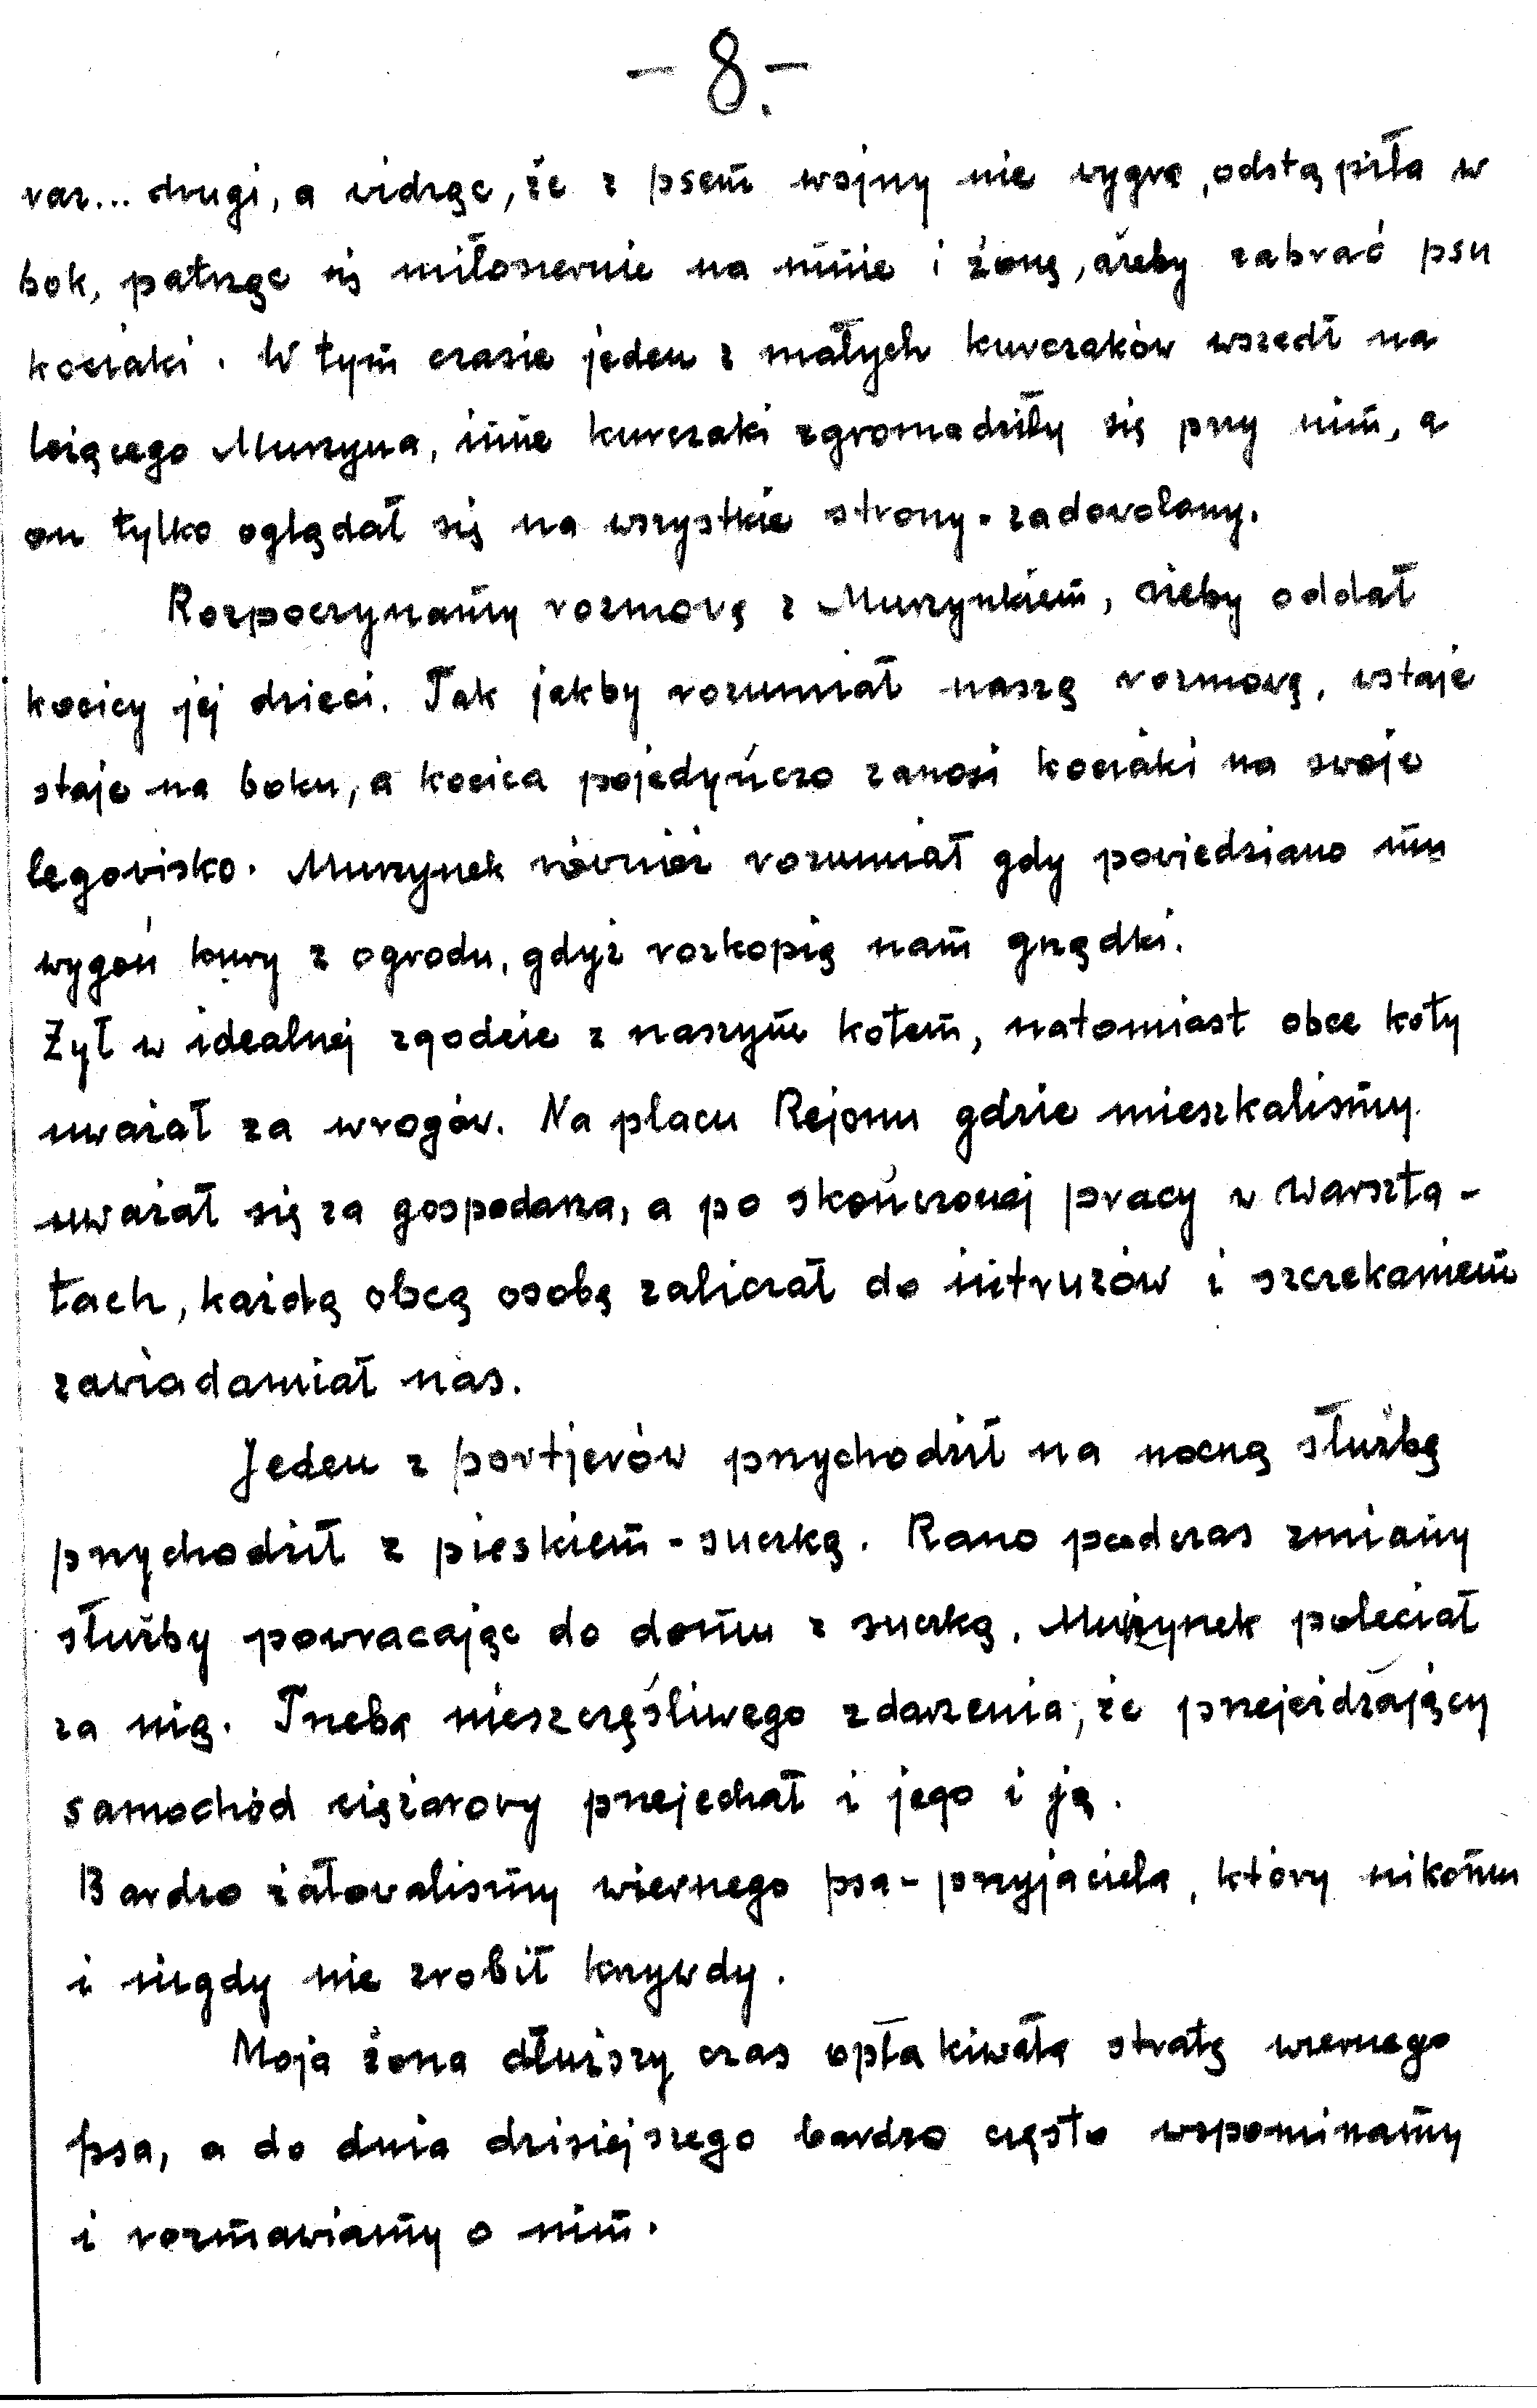 - 8. -
raz... drugi, a widząc, że z psem wojny nie wygra, odstąpiła w
bok, patrząc się miłosiernie na mnie i żonę, ażeby zabrać psu
kociaki. W tym czasie jeden z małych kurczaków wszedł na
leżącego Murzyna, inne kurczaki zgromadziły się przy nim, a
on tylko oglądał się na wszystkie strony - zadowolany.
Rozpoczynamy rozmowę z Murzynkiem, ażeby oddał
kocicy jej dzieci. Tak jakby rozumiał naszą rozmowę, wstaje
staje na boku, a kocica pojedyńczo zanosi kociaki na swoje
legowisko. Murzynek również rozumiał gdy powiedziano mu
wygoń kury z ogrodu, gdyż rozkopią nam grządki.
Żył w idealnej zgodzie z naszym kotem, natomiast obce koty
uważał za wrogów. Na placu Rejonu gdzie mieszkaliśmy
uważał się za gospodarza, a po skończonej pracy w Warszta-
tach, każdą obcą osobę zaliczał do intruzów i szczekaniem
zawiadamiał nas.
Jeden z portjerów przychodził na nocną służbę
przychodził z pieskiem - suczką. Rano podczas zmiany
służby powracając do domu z suczką, Murzynek poleciał
za nią. Trzeba nieszczęśliwego zdarzenia, że przejeżdżający
samochód ciężarowy przejechał i jego i ją.
Bardzo żałowaliśmy wiernego psa - przyjaciela, który nikomu
i nigdy nie zrobił krzywdy.
Moja żona dłuższy czas opłakiwała stratę wiernego
psa, a do dnia dzisiejszego bardzo często wspominamy
i rozmawiamy o nim.